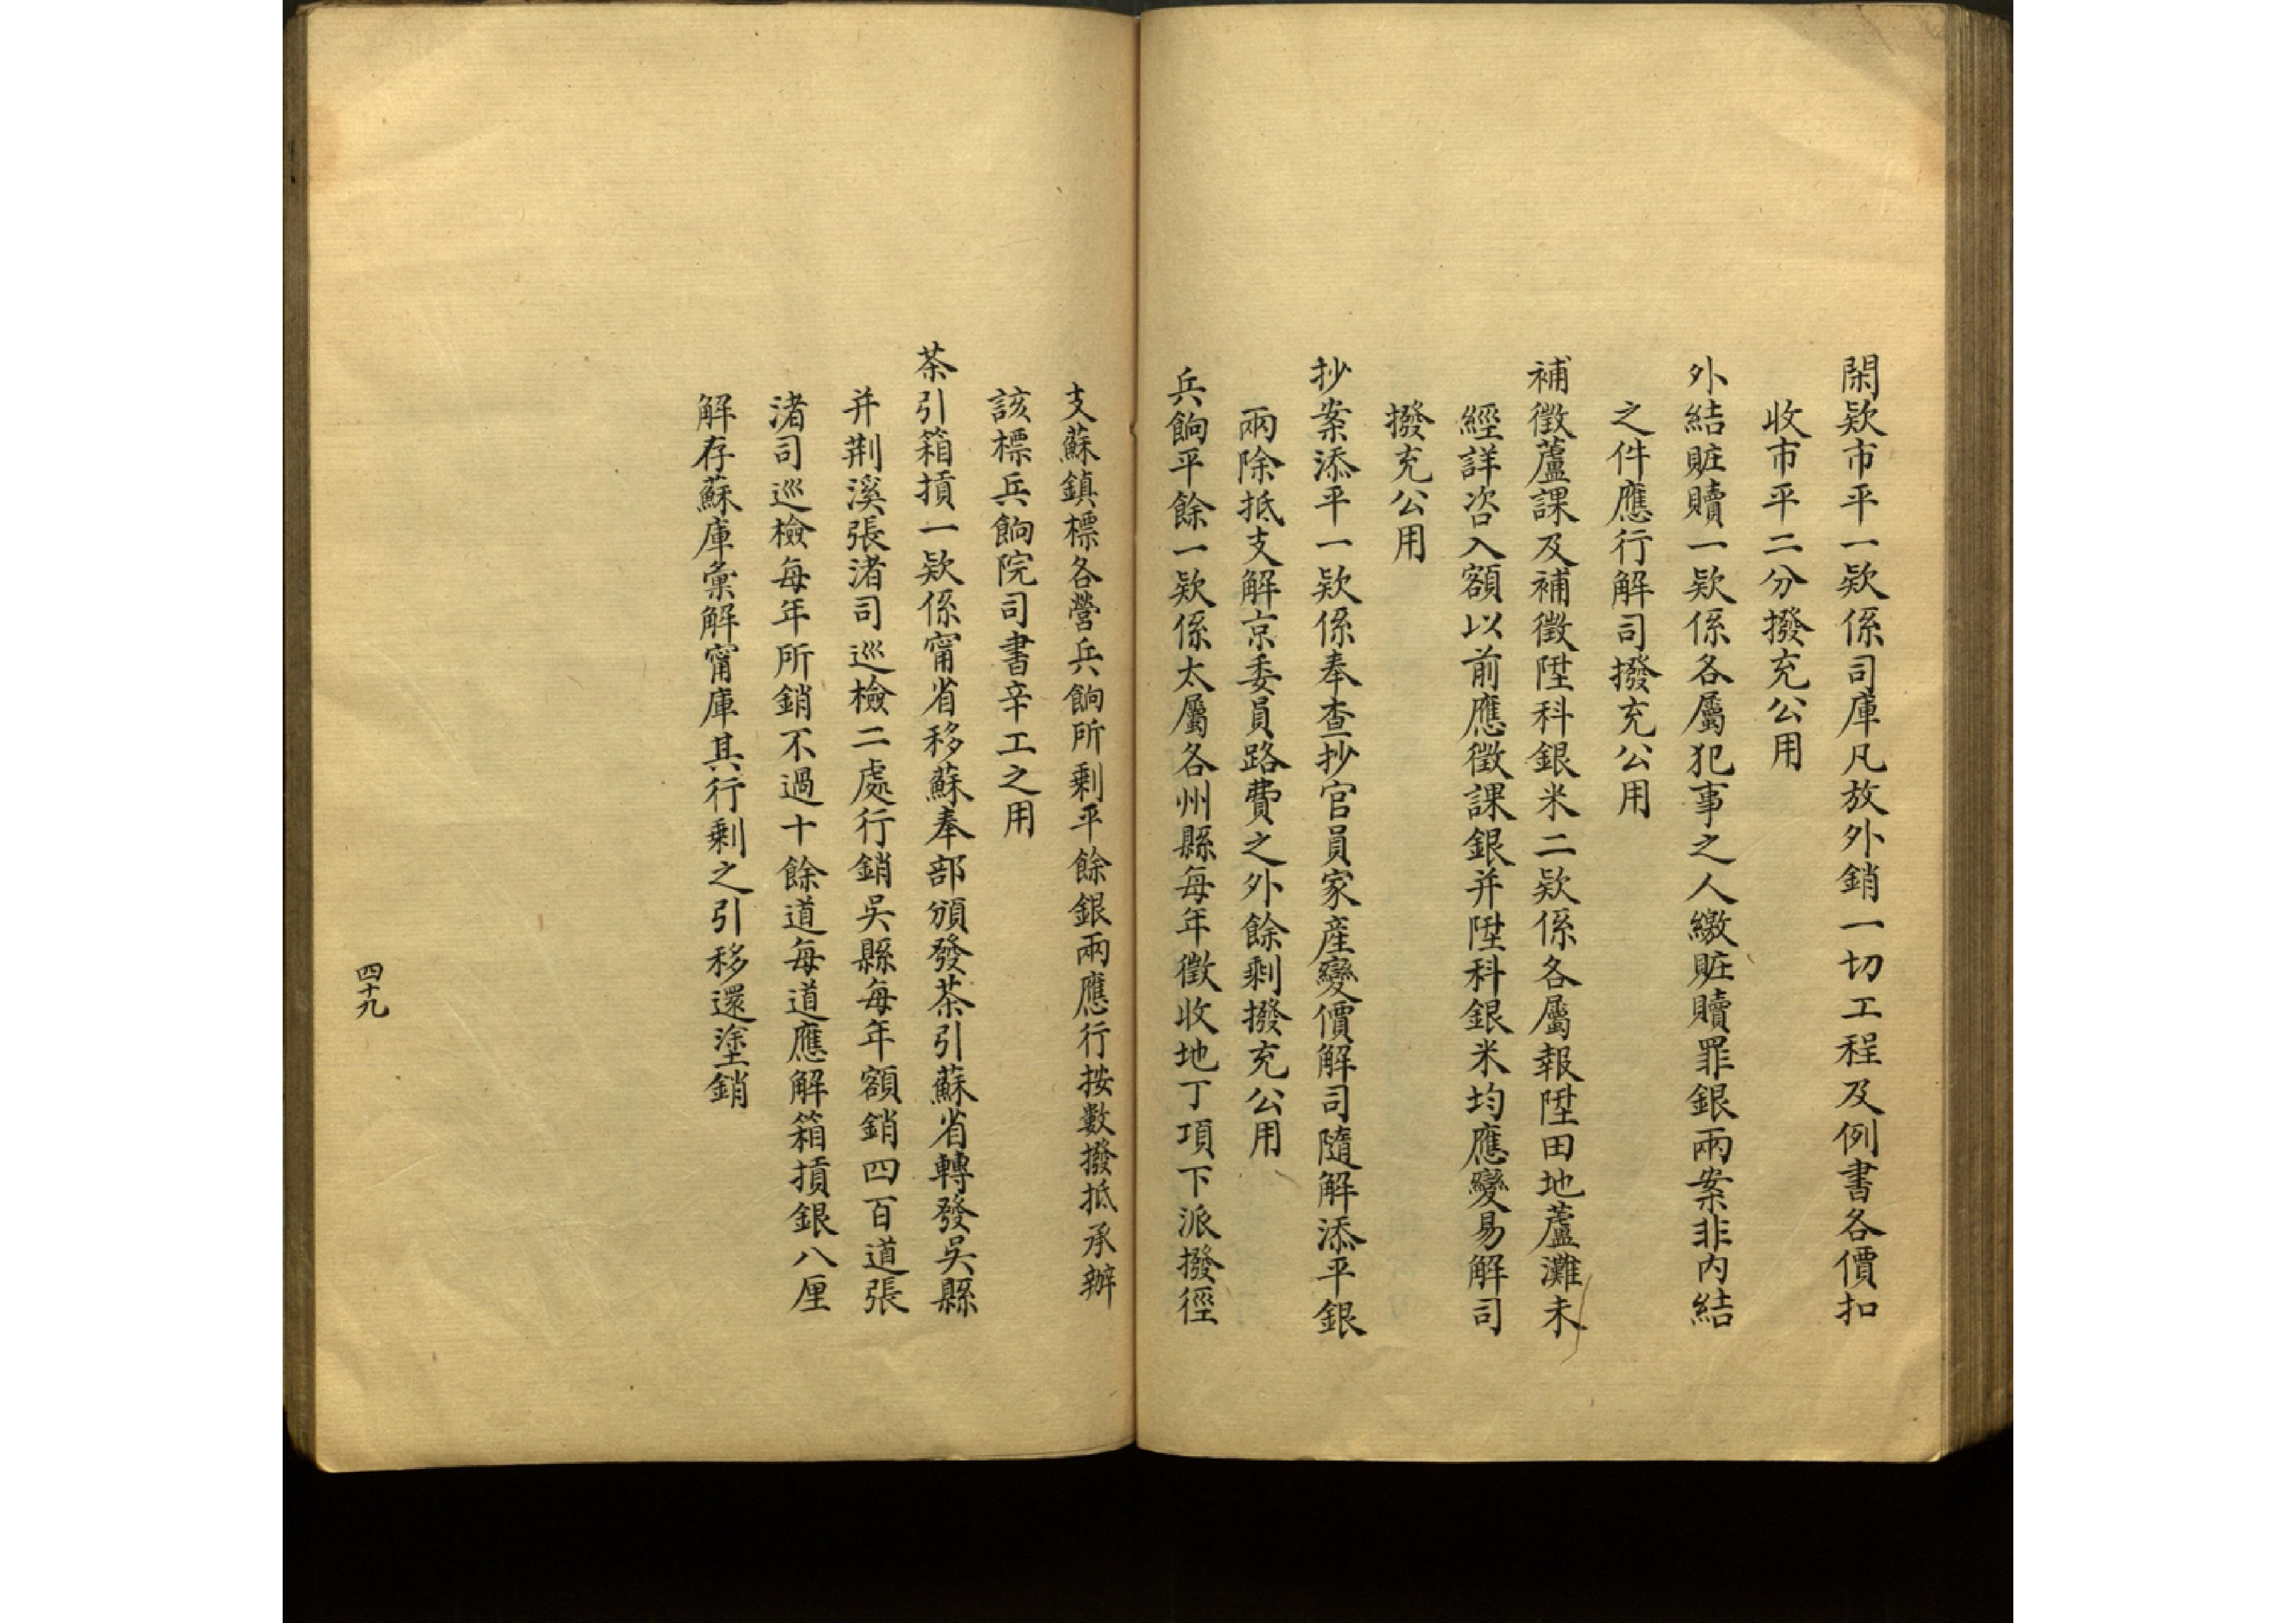 閑欵市平一欵係司庫凡放外銷一切工程及例書各價扣
收市平二分撥充公用
外結賍贖一欵係各屬犯事之人繳賍贖罪銀兩案非內結
之件應行解司撥充公用
補徵蘆課及補徵陞科銀米二欵係各屬報陞田地蘆灘未
經詳咨入額以前應徵課銀并陞科銀米均應變易解司
撥充公用
抄案添平一欵係奉查抄官員家產變價解司隨解添平銀
兩除抵支解京委員路費之外餘剩撥充公用
兵餉平餘一欵係太屬各州縣每年徵收地丁項下派撥徑
支蘇鎮標各營兵餉所剩平餘銀兩應行按數撥抵承辦
該標兵餉院司書辛工之用
茶引箱摃一欵係甯省移蘇奉部頒發茶引蘇省轉發吳縣
并荆溪張渚司巡檢二處行銷吳縣每年額銷四百道張
渚司巡檢每年所銷不過十餘道每道應解箱摃銀八厘
解存蘇庫彙解甯庫其行剩之引移還塗銷
四十九